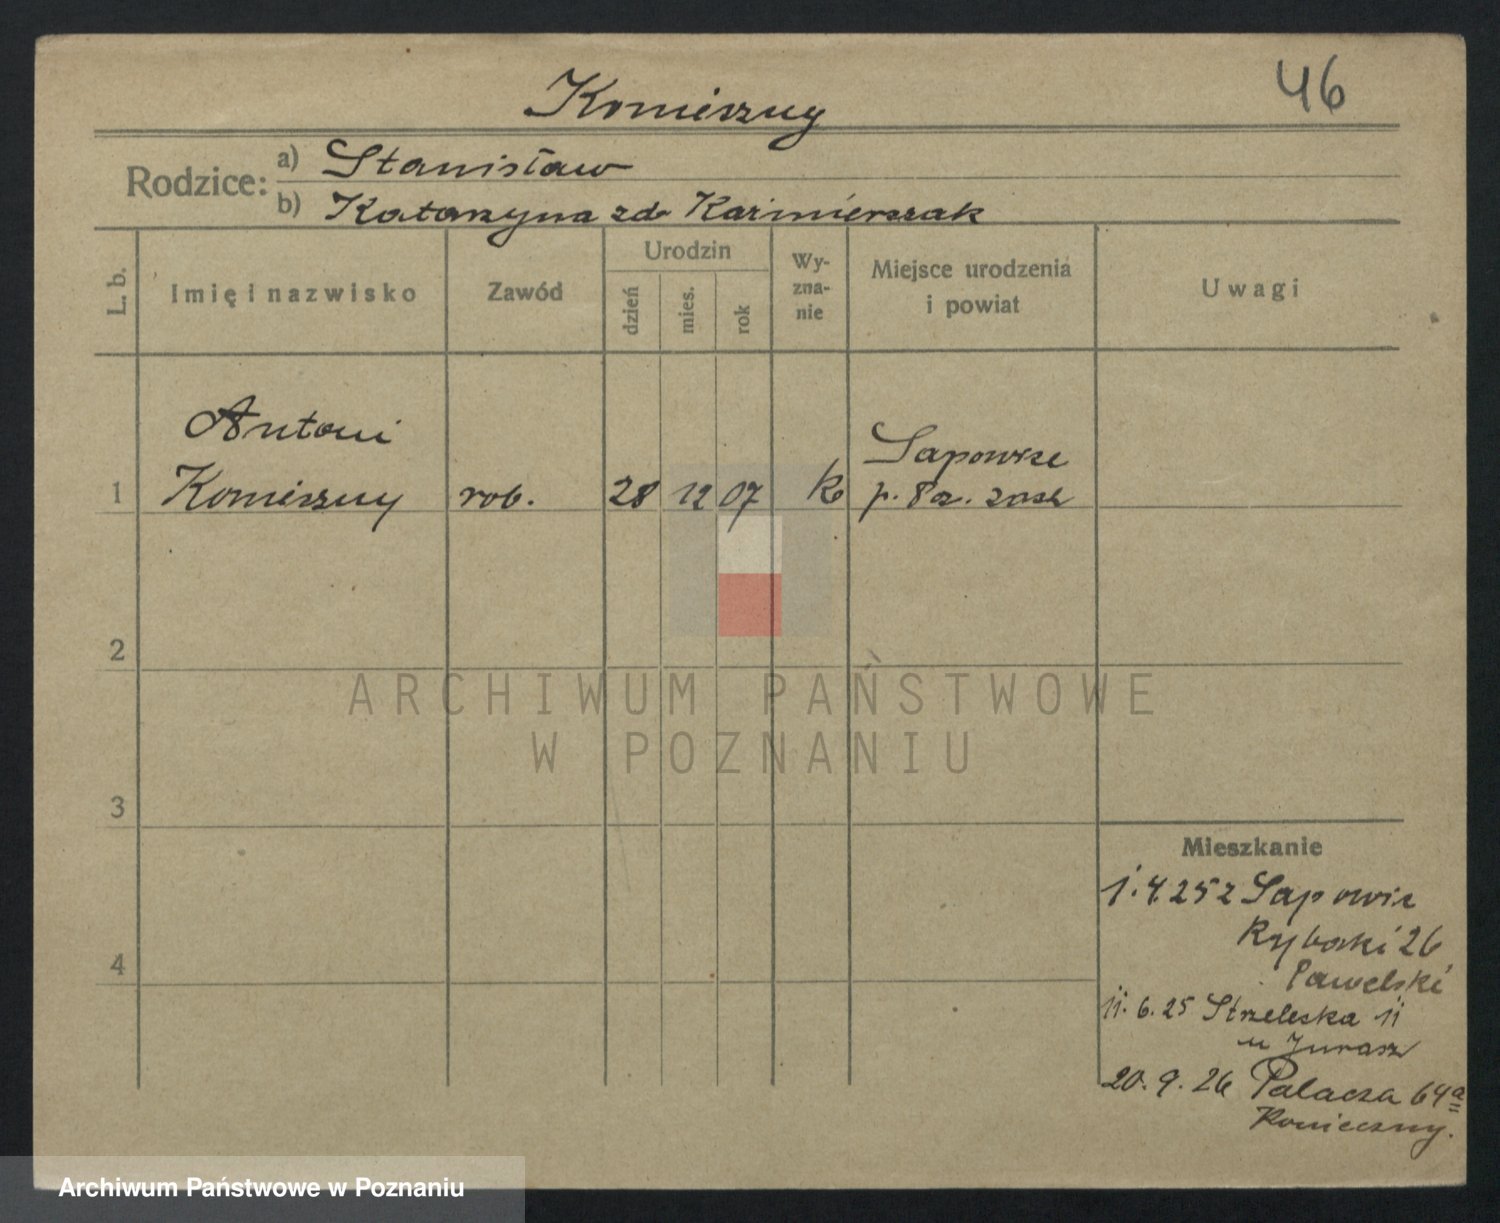 Konieczny
46
Rodzice: a) Stanisław
b) Katarzyna zd. Kaźmierczak
L. b.
Imię i nazwisko
Zawód
Urodzin
dzień
mies.
rok
Wy-
zna-
nie
Miejsce urodzenia
i powiat
Uwagi
Antoni
Sapowice
1 Konieczny rob. 28 12 07 k p. Pozn. zach
2
ARCHIWUM PAŃSTWOWE
W POZNANIU
3
Mieszkanie
1.4.25 z Sapowic
4 Rybaki 26
Pawelski
11.6.25 Strzelecka 11
u Jurasz
20.9.26 Palacza 64a
Konieczny.
Archiwum Państwowe w Poznaniu